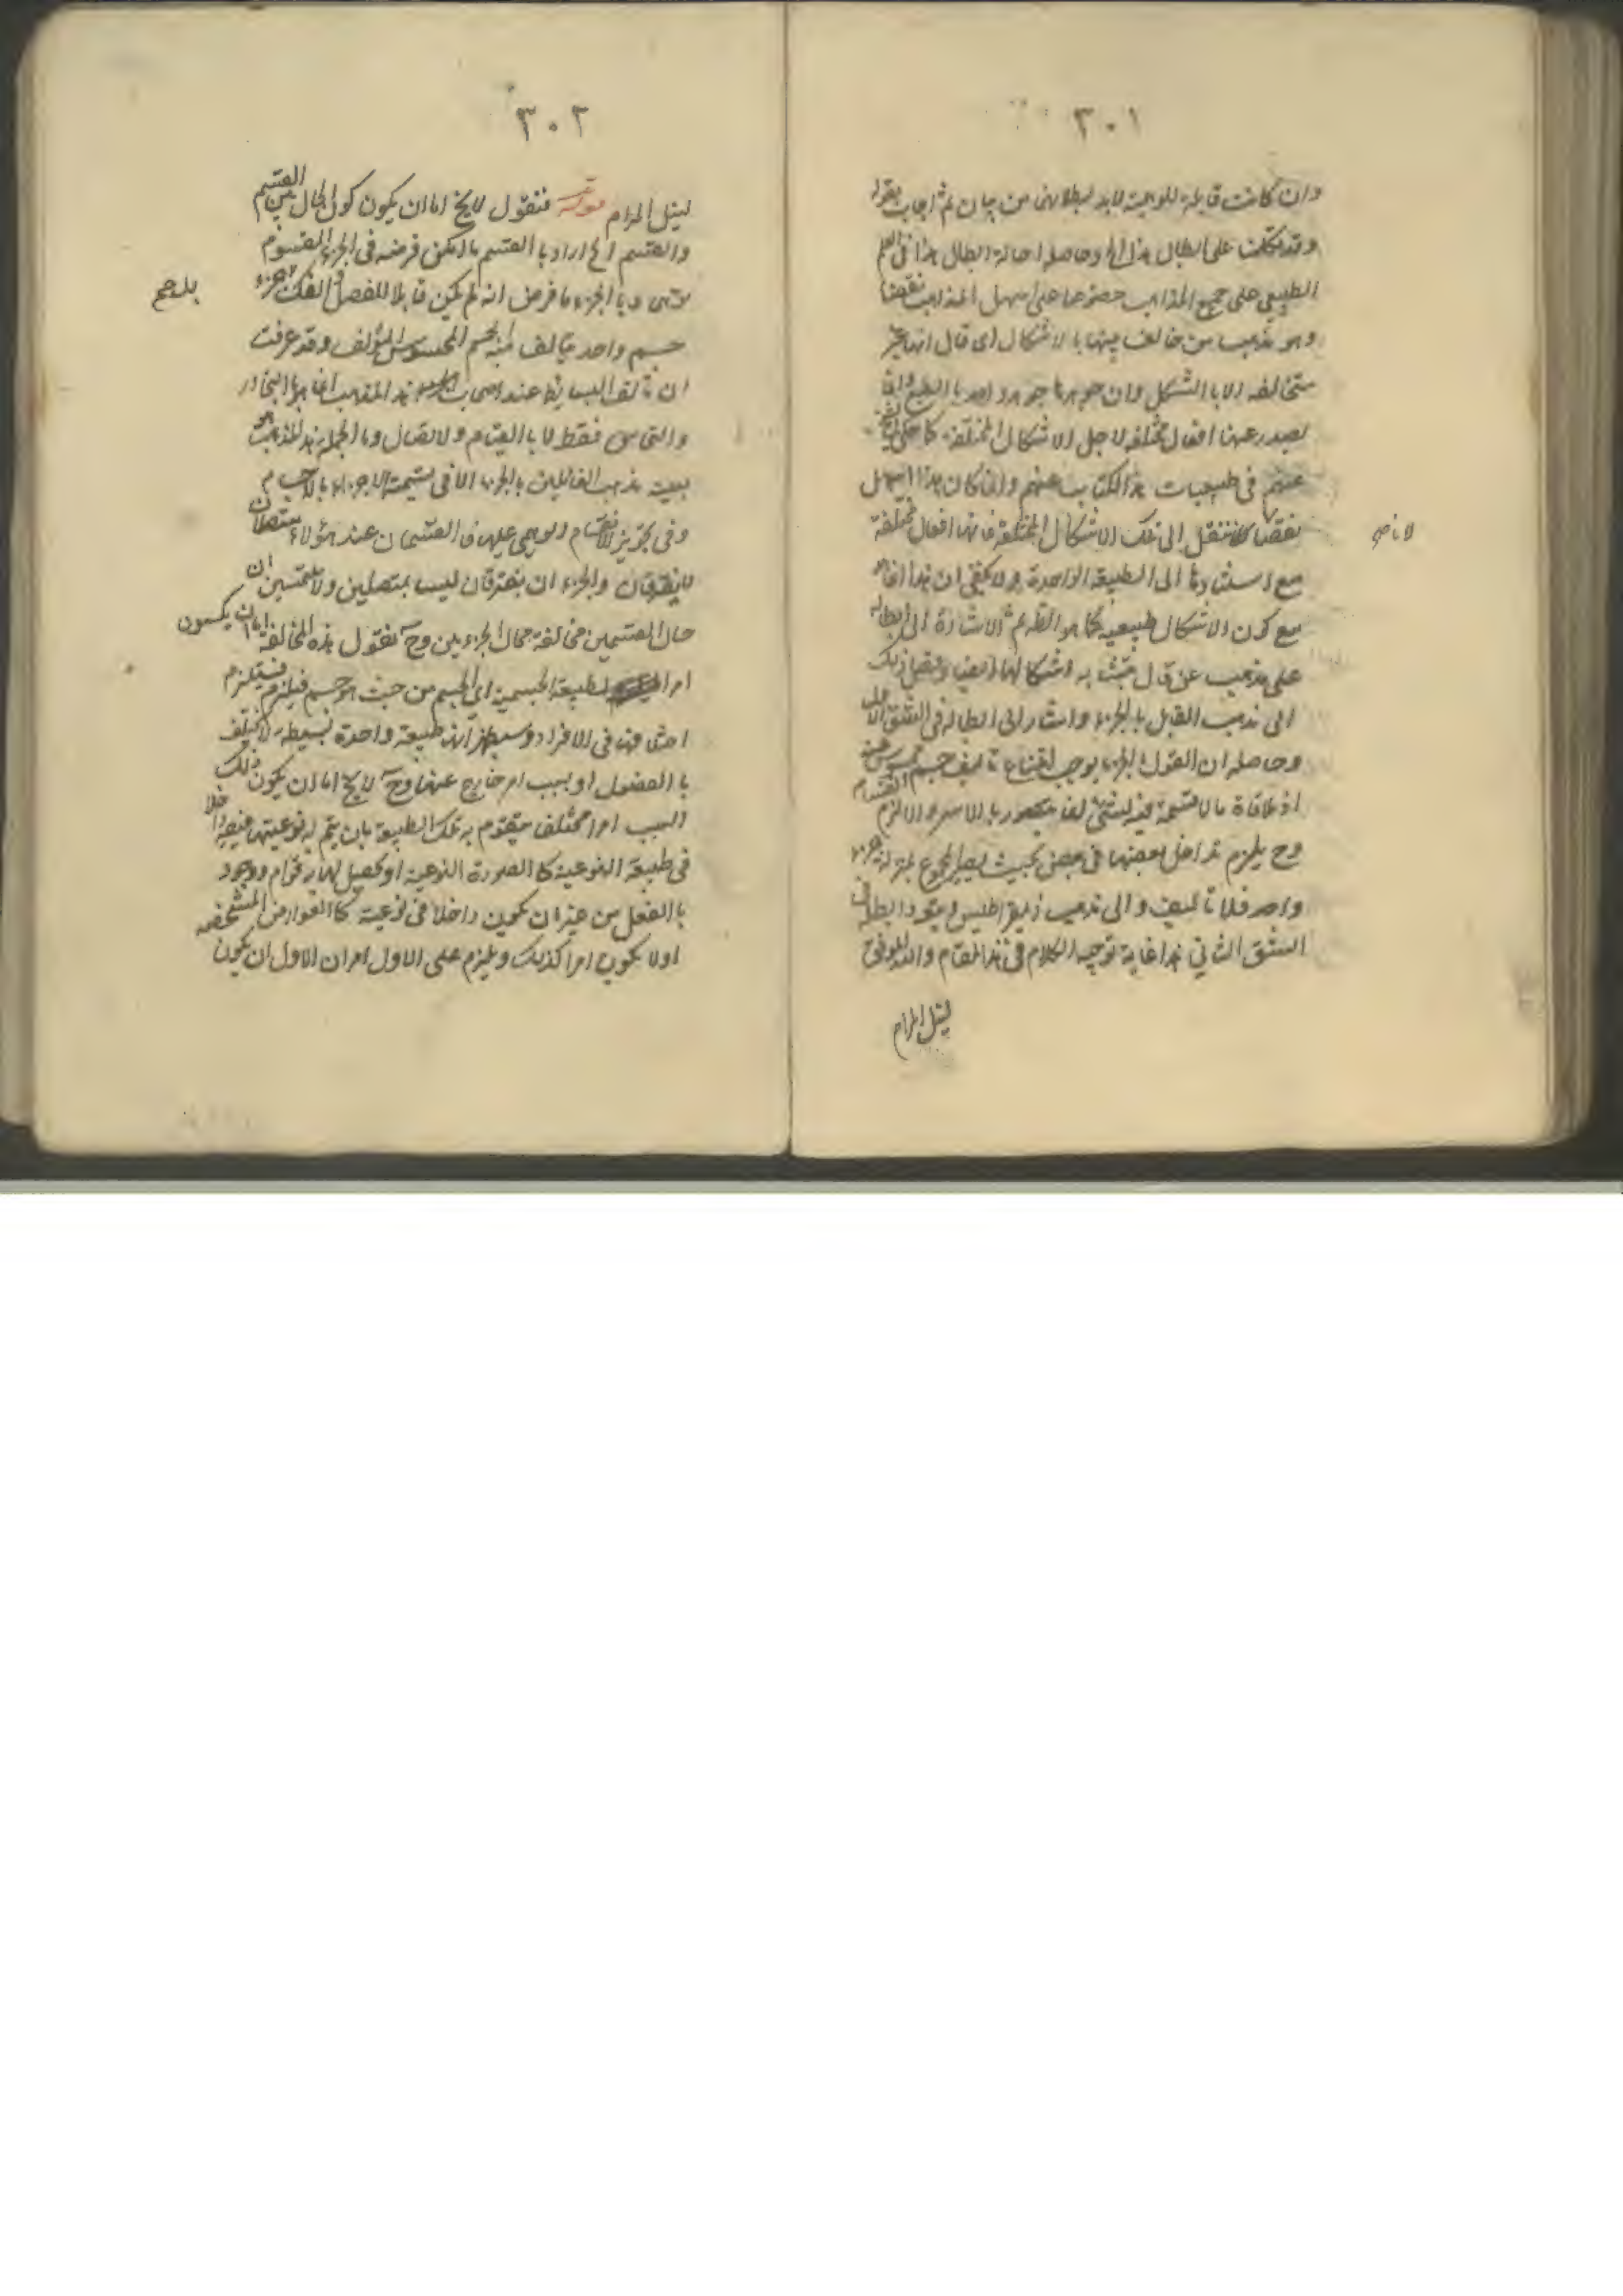 ٣٠١
وان كانت قابلة للوهمية لابد لبطلانه من بيان ثم اجاب بقوله
وقد تكلمت على ابطال هذا الخ وحاصله احالة ابطال هذا فى العلم
الطبيعي على جميع المذاهب خصوصا على اسهل المذاهب نقضا
وهو مذهب من خالف بينها بالاشكال اى قال انها غير
متخالفة الا بالشكل وان جوهرها جوهر واحد بالطبع وانما
تصدر عنها افعال مختلفة لاجل الاشكال المختلفة كما حكى الشيخ
عنهم فى طبيعيات هذا الكتاب عنهم وانما كان هذا اسهل
نقضا لانا ننقل الى تلك الاشكال المختلفة فانها افعال مختلفة
مع استنادها الى الطبيعة الواحدة ولا يخفى ان هذا انما هو
مع كون الاشكال طبيعية كما هو الظ ثم الاشارة الى ابطاله
على مذهب
الى مذهب القايل بالجزء واشار الى ابطاله فى الشق الاول
وحاصله ان القول بالجزء يوجب امتناع تأليف جسم محسوس عنه
اذ ملاقاة ما لا قسمة فيه لشئ انما يتصور بالاسر والا لزم انقسام
وح يلزم تداخل بعضها فى بعض بحيث يصير المجموع بمنزلة جزء
واحد فلا تأليف والى مذهب ذيمقراطيس ويعود ابطاله فى
الشق الثانى هذا غاية توجيه الكلام فى هذا المقام والله الموفق
لنيل المرام
لا نا صح
٣٠٢
لنيل المرام قوله فنقول لا يخ اما ان يكون كون الحال بين القسم
والقسم الخ اراد بالقسم ما امكن فرضه فى الجزء المقسوم
وهمى وبالجزء ما فرض انه لم يكن قابلا للفصل والفك جزء
جسم واحد يتألف منه الجسم المحسوس المؤلف وقد عرفت
ان تألف البسايط عند اصحاب هذا المذهب انما هو بالتجاور
والتماس فقط لا بالقسام ولا تصال وبالجملة هذا المذهب هو
بعينه مذهب القائلين بالجزء الا فى تسمية الاجزاء بالاجسام
وفى تجويز الانقسام الوهمى عليها فالقسمان عند هؤلاء متصلان
لا يفترقان والجزء ان يفترقان ليسا بمتصلين ولا ملتحمين ان
حال القسمين مخالفة بحال الجزءين وح نقول هذه المخالفة اما ان يكون
امرا لطبيعة الجسمية اى الجسم من حيث هو جسم فيلزم فيستلزم
اختلافها فى الافراد وسيظهر انها طبيعة واحدة بسيطة لا يختلف
بالفصول او بسبب امر خارج عنها وح لا يخ اما ان يكون ذلك
السبب امرا مختلف يتقوم به تلك الطبيعة بان يتم له نوعيتها فيصير داخلا
فى طبيعة النوعية كالصورة النوعية او يحصل لها به قوام ووجود
بالفعل من غير ان يكون داخلا فى نوعية كالعوارض المشخصة
او لا يكون امرا كذلك ويلزم على الاول امران الاول ان يكون
بلا صح